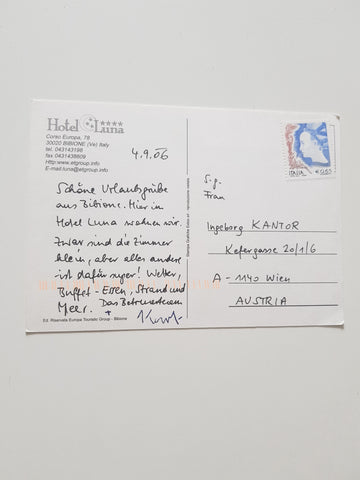 Hotel Luna ****
Corso Europa, 78
30020 BIBIONE (Ve) Italy
tel. 043143198
fax 0431438609
Http:www.etgroup.info
E-mail:luna@etgroup.info
4.9.06
Schöne Urlaubsgrüße
aus Bibione. Hier im
Hotel Luna wohnen wir.
Zwar sind die Zimmer
klein, aber alles andere
ist dafür super! Wetter,
Buffet-Essen, Strand und
Meer. Das Betreuerteam
+
Ed. Riservata Europa Touristic Group - Bibione
ITALIA €0,65
S.g.
Frau
Ingeborg KANTOR
Kefergasse 20/1/6
A - 1140 Wien
AUSTRIA